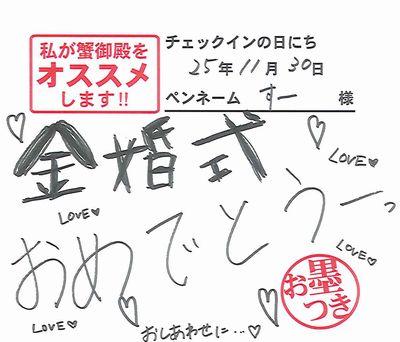 私が蟹御殿を
オススメ
します!!
チェックインの日にち
25年11月30日
ペンネーム すー 様
金婚式
LOVE♡
LOVE♡
おめでとうーっ
LOVE♡
LOVE♡
おしあわせに…♡
お墨つき